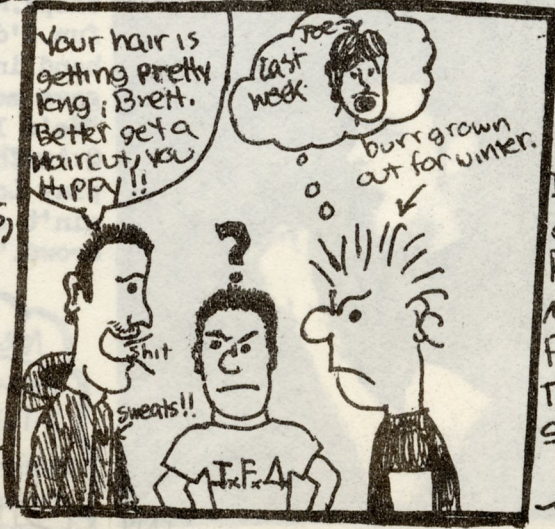 Your hair is
getting pretty
long, Brett.
Better get a
Haircut, you
Hippy!!
Joey
last
week.
burr grown
out for winter.
?
shit
sweats!!
IxFxA